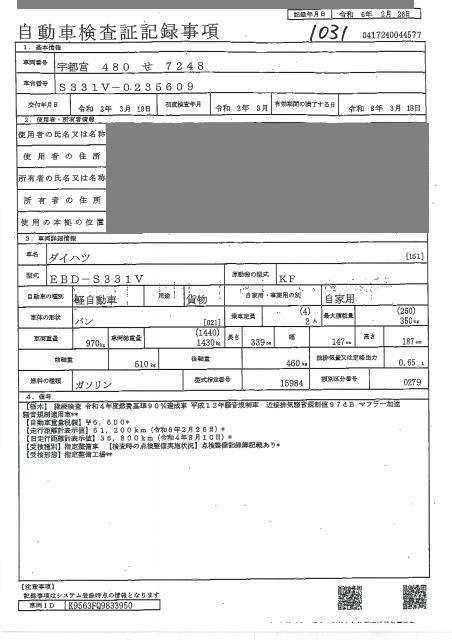 記録年月日 令和 6年 2月 26日
自動車検査証記録事項 1031 0417240044577
1．基本情報
車両番号 宇都宮 480 せ 7248
車台番号 S331V-0235609
交付年月日 令和 2年 3月 19日 初度検査年月 令和 2年 3月 有効期間の満了する日 令和 8年 3月 18日
2．使用者・所有者情報
使用者の氏名又は名称
使用者の住所
所有者の氏名又は名称
所有者の住所
使用の本拠の位置
3．車両詳細情報
車名 ダイハツ [151]
型式 EBD-S331V 原動機の型式 KF
自動車の種別 軽自動車 用途 貨物 自家用・事業用の別 自家用
車体の形状 バン [021] 乗車定員 (4) 2人 最大積載量 (250) 350kg
車両重量 970kg 車両総重量 (1440) 1430kg 長さ 339cm 幅 147cm 高さ 187cm
前軸重 510kg 後軸重 460kg 総排気量又は定格出力 0.65 L
燃料の種類 ガソリン 型式指定番号 15984 類別区分番号 0279
4．備考
【栃木】 継続検査 令和4年度燃費基準90％達成車 平成12年騒音規制車 近接排気騒音規制値97dB マフラー加速
騒音規制適用車**
【自動車重量税額】￥6,600*
【走行距離計表示値】61,200km（令和6年2月26日）*
【旧走行距離計表示値】36,800km（令和4年3月10日）*
【受検種別】指定整備車 【検査時の点検整備実施状況】点検整備記録簿記載あり*
【受検形態】指定整備工場**
【注意事項】
記録事項はシステム登録時点の情報となります
車両ID K9563FQ9833950